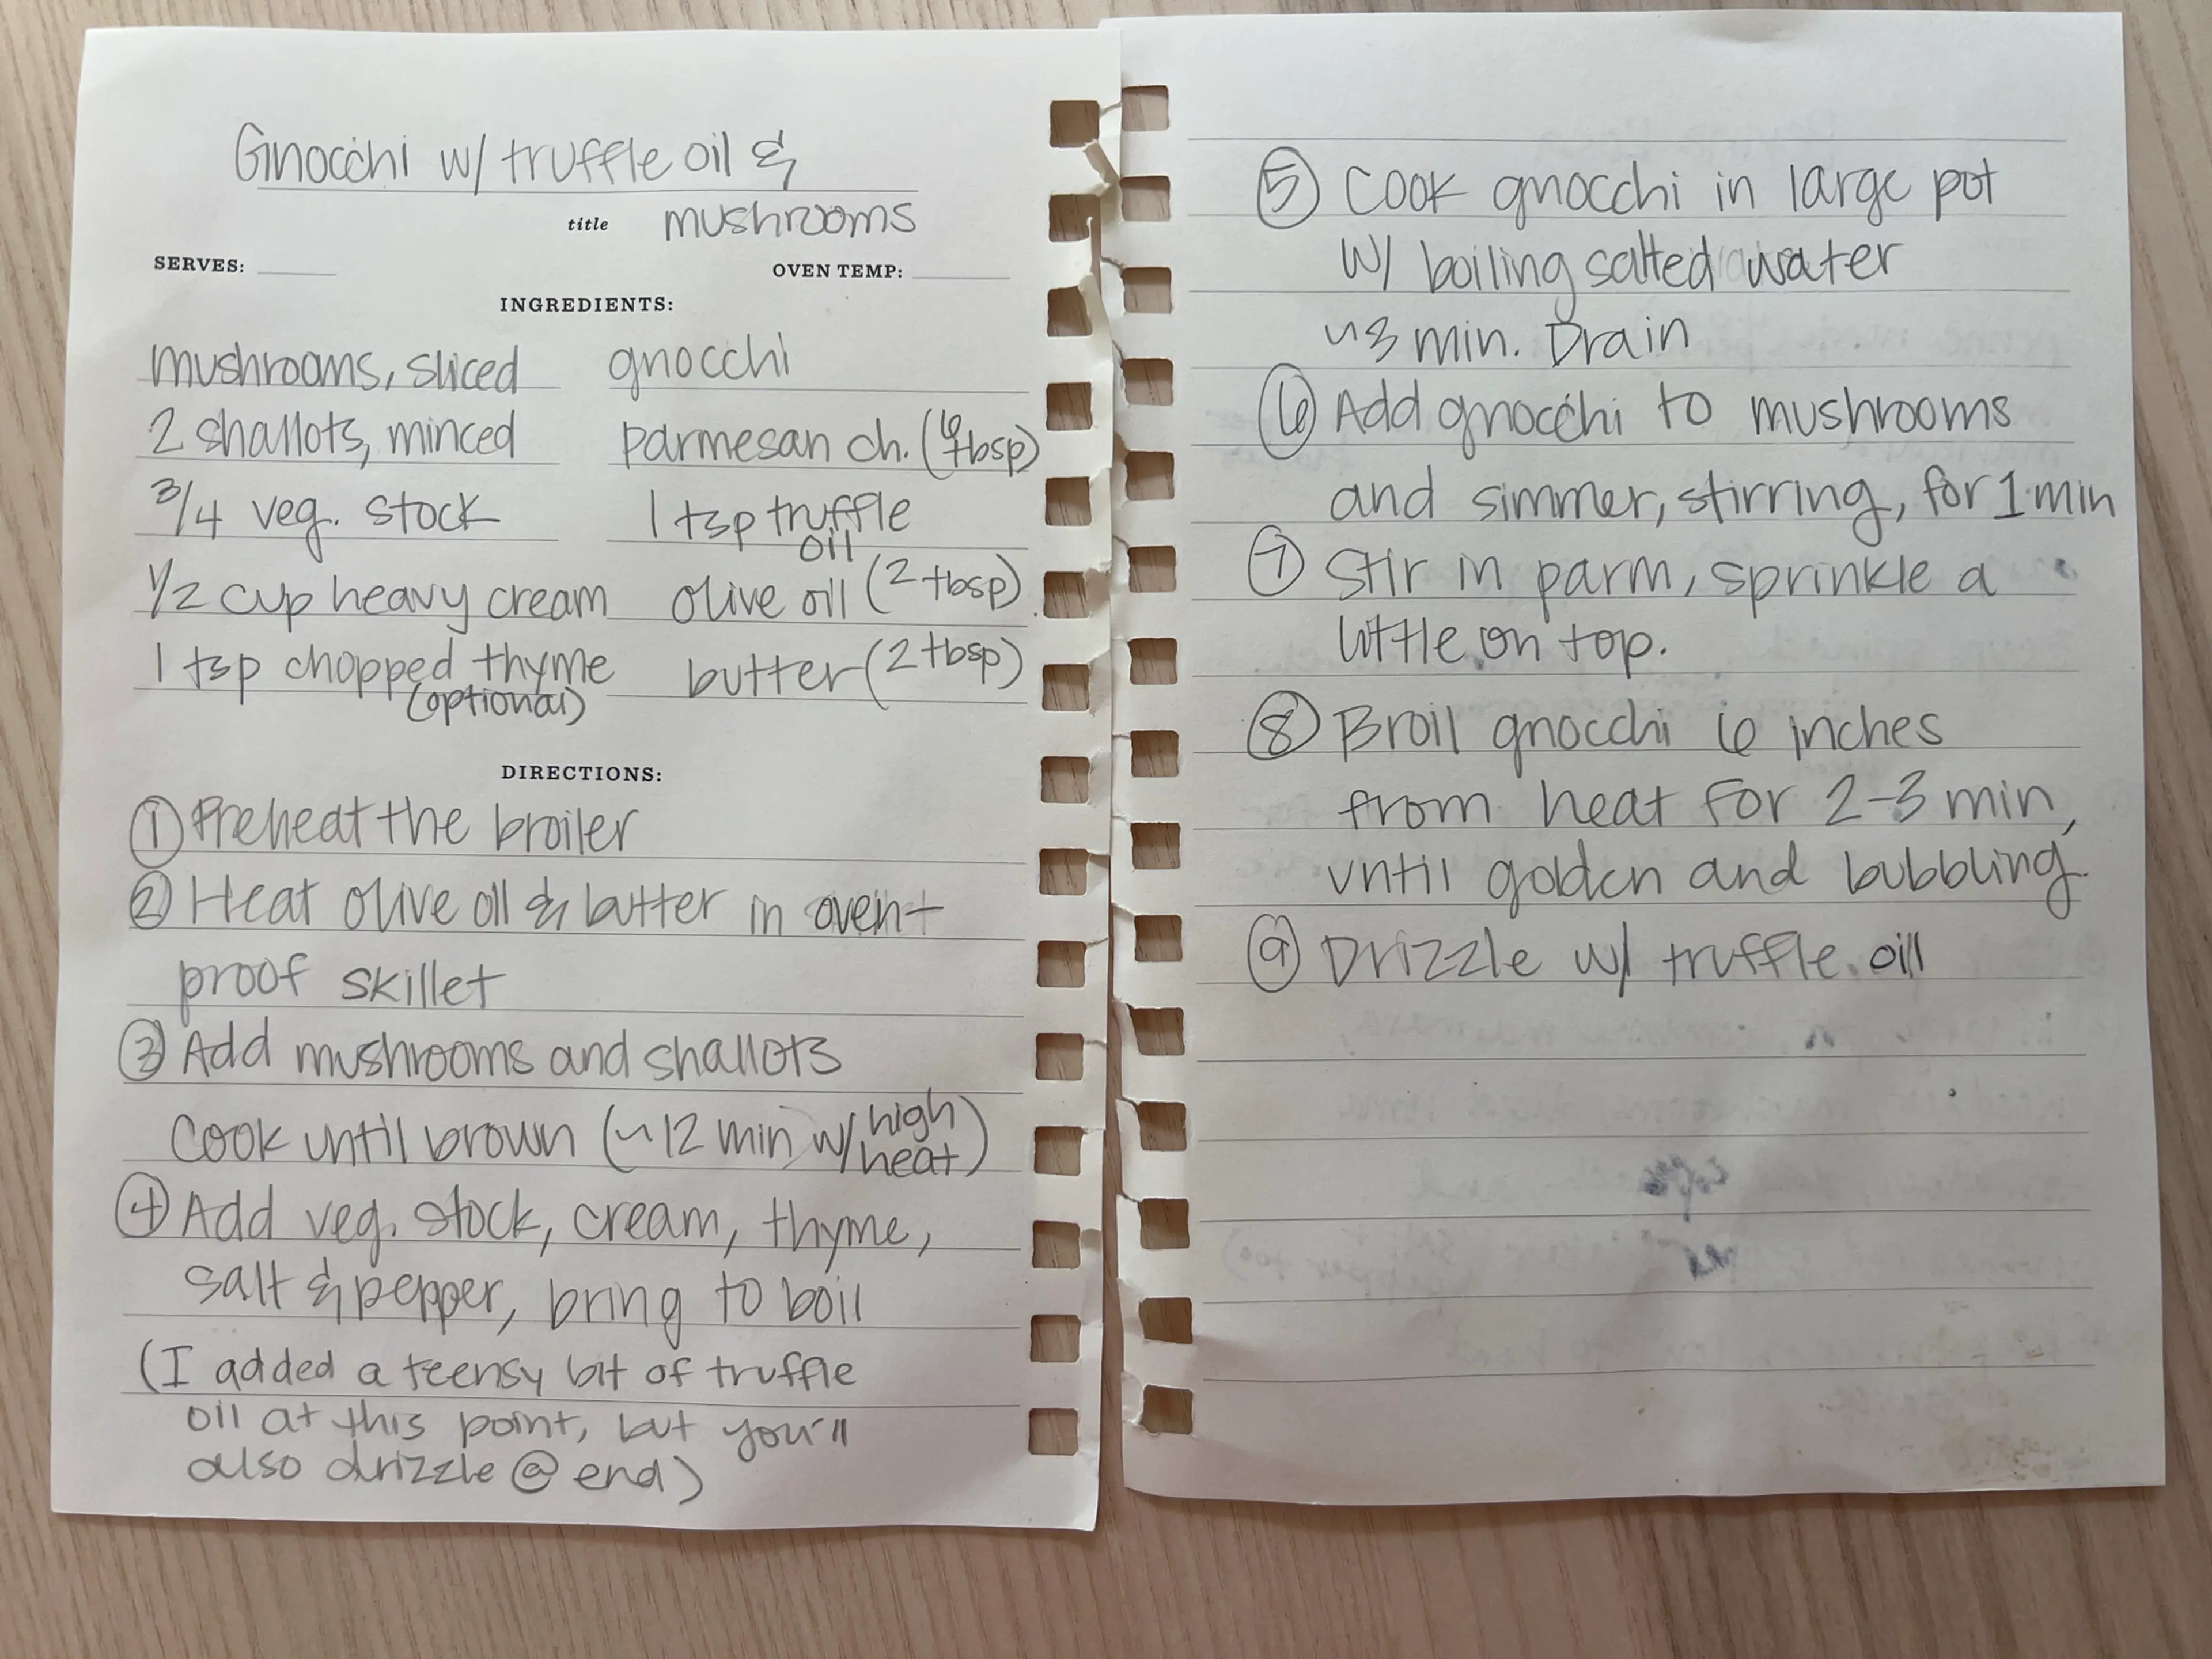 Gnocchi w/ truffle oil &
title mushrooms
SERVES: OVEN TEMP:
INGREDIENTS:
mushrooms, sliced
2 shallots, minced
3/4 veg. stock
1/2 cup heavy cream
1 tsp chopped thyme
(optional)
gnocchi
parmesan ch. (6 tbsp)
1 tsp truffle
oil
olive oil (2 tbsp)
butter (2 tbsp)
DIRECTIONS:
① Preheat the broiler
② Heat olive oil & butter in oven-
proof skillet
③ Add mushrooms and shallots
Cook until brown (~12 min w/ high
heat)
④ Add veg. stock, cream, thyme,
salt & pepper, bring to boil
(I added a teensy bit of truffle
oil at this point, but you'll
also drizzle @ end)
⑤ Cook gnocchi in large pot
w/ boiling salted water
~3 min. Drain
⑥ Add gnocchi to mushrooms
and simmer, stirring, for 1 min
⑦ Stir in parm, sprinkle a
little on top.
⑧ Broil gnocchi 6 inches
from heat for 2-3 min,
until golden and bubbling.
⑨ Drizzle w/ truffle oil